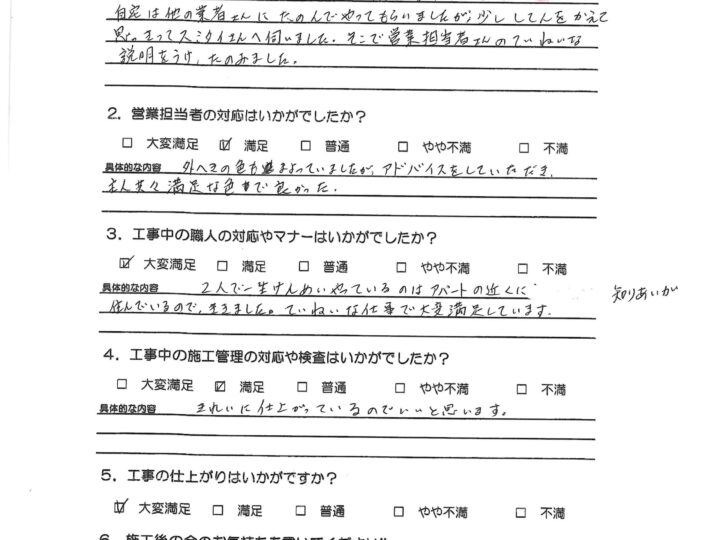 自宅は他の業者さんにたのんでやってもらいましたが、少ししてんをかえて
思ってスミタイさんへ伺いました。そこで営業担当者さんのていねいな
説明をうけ、たのみました。
2. 営業担当者の対応はいかがでしたか?
□ 大変満足 ☑ 満足 □ 普通 □ やや不満 □ 不満
具体的な内容 外へきの色がまよっていましたが、アドバイスをしていただき、
主人共々満足な色で良かった。
3. 工事中の職人の対応やマナーはいかがでしたか?
☑ 大変満足 □ 満足 □ 普通 □ やや不満 □ 不満
具体的な内容 2人で一生けんめいやっているのはアパートの近くに
知りあいが
住んでいるので、ききました。ていねいな仕事で大変満足しています。
4. 工事中の施工管理の対応や検査はいかがでしたか?
□ 大変満足 ☑ 満足 □ 普通 □ やや不満 □ 不満
具体的な内容 きれいに仕上がっているのでいいと思います。
5. 工事の仕上がりはいかがですか?
☑ 大変満足 □ 満足 □ 普通 □ やや不満 □ 不満